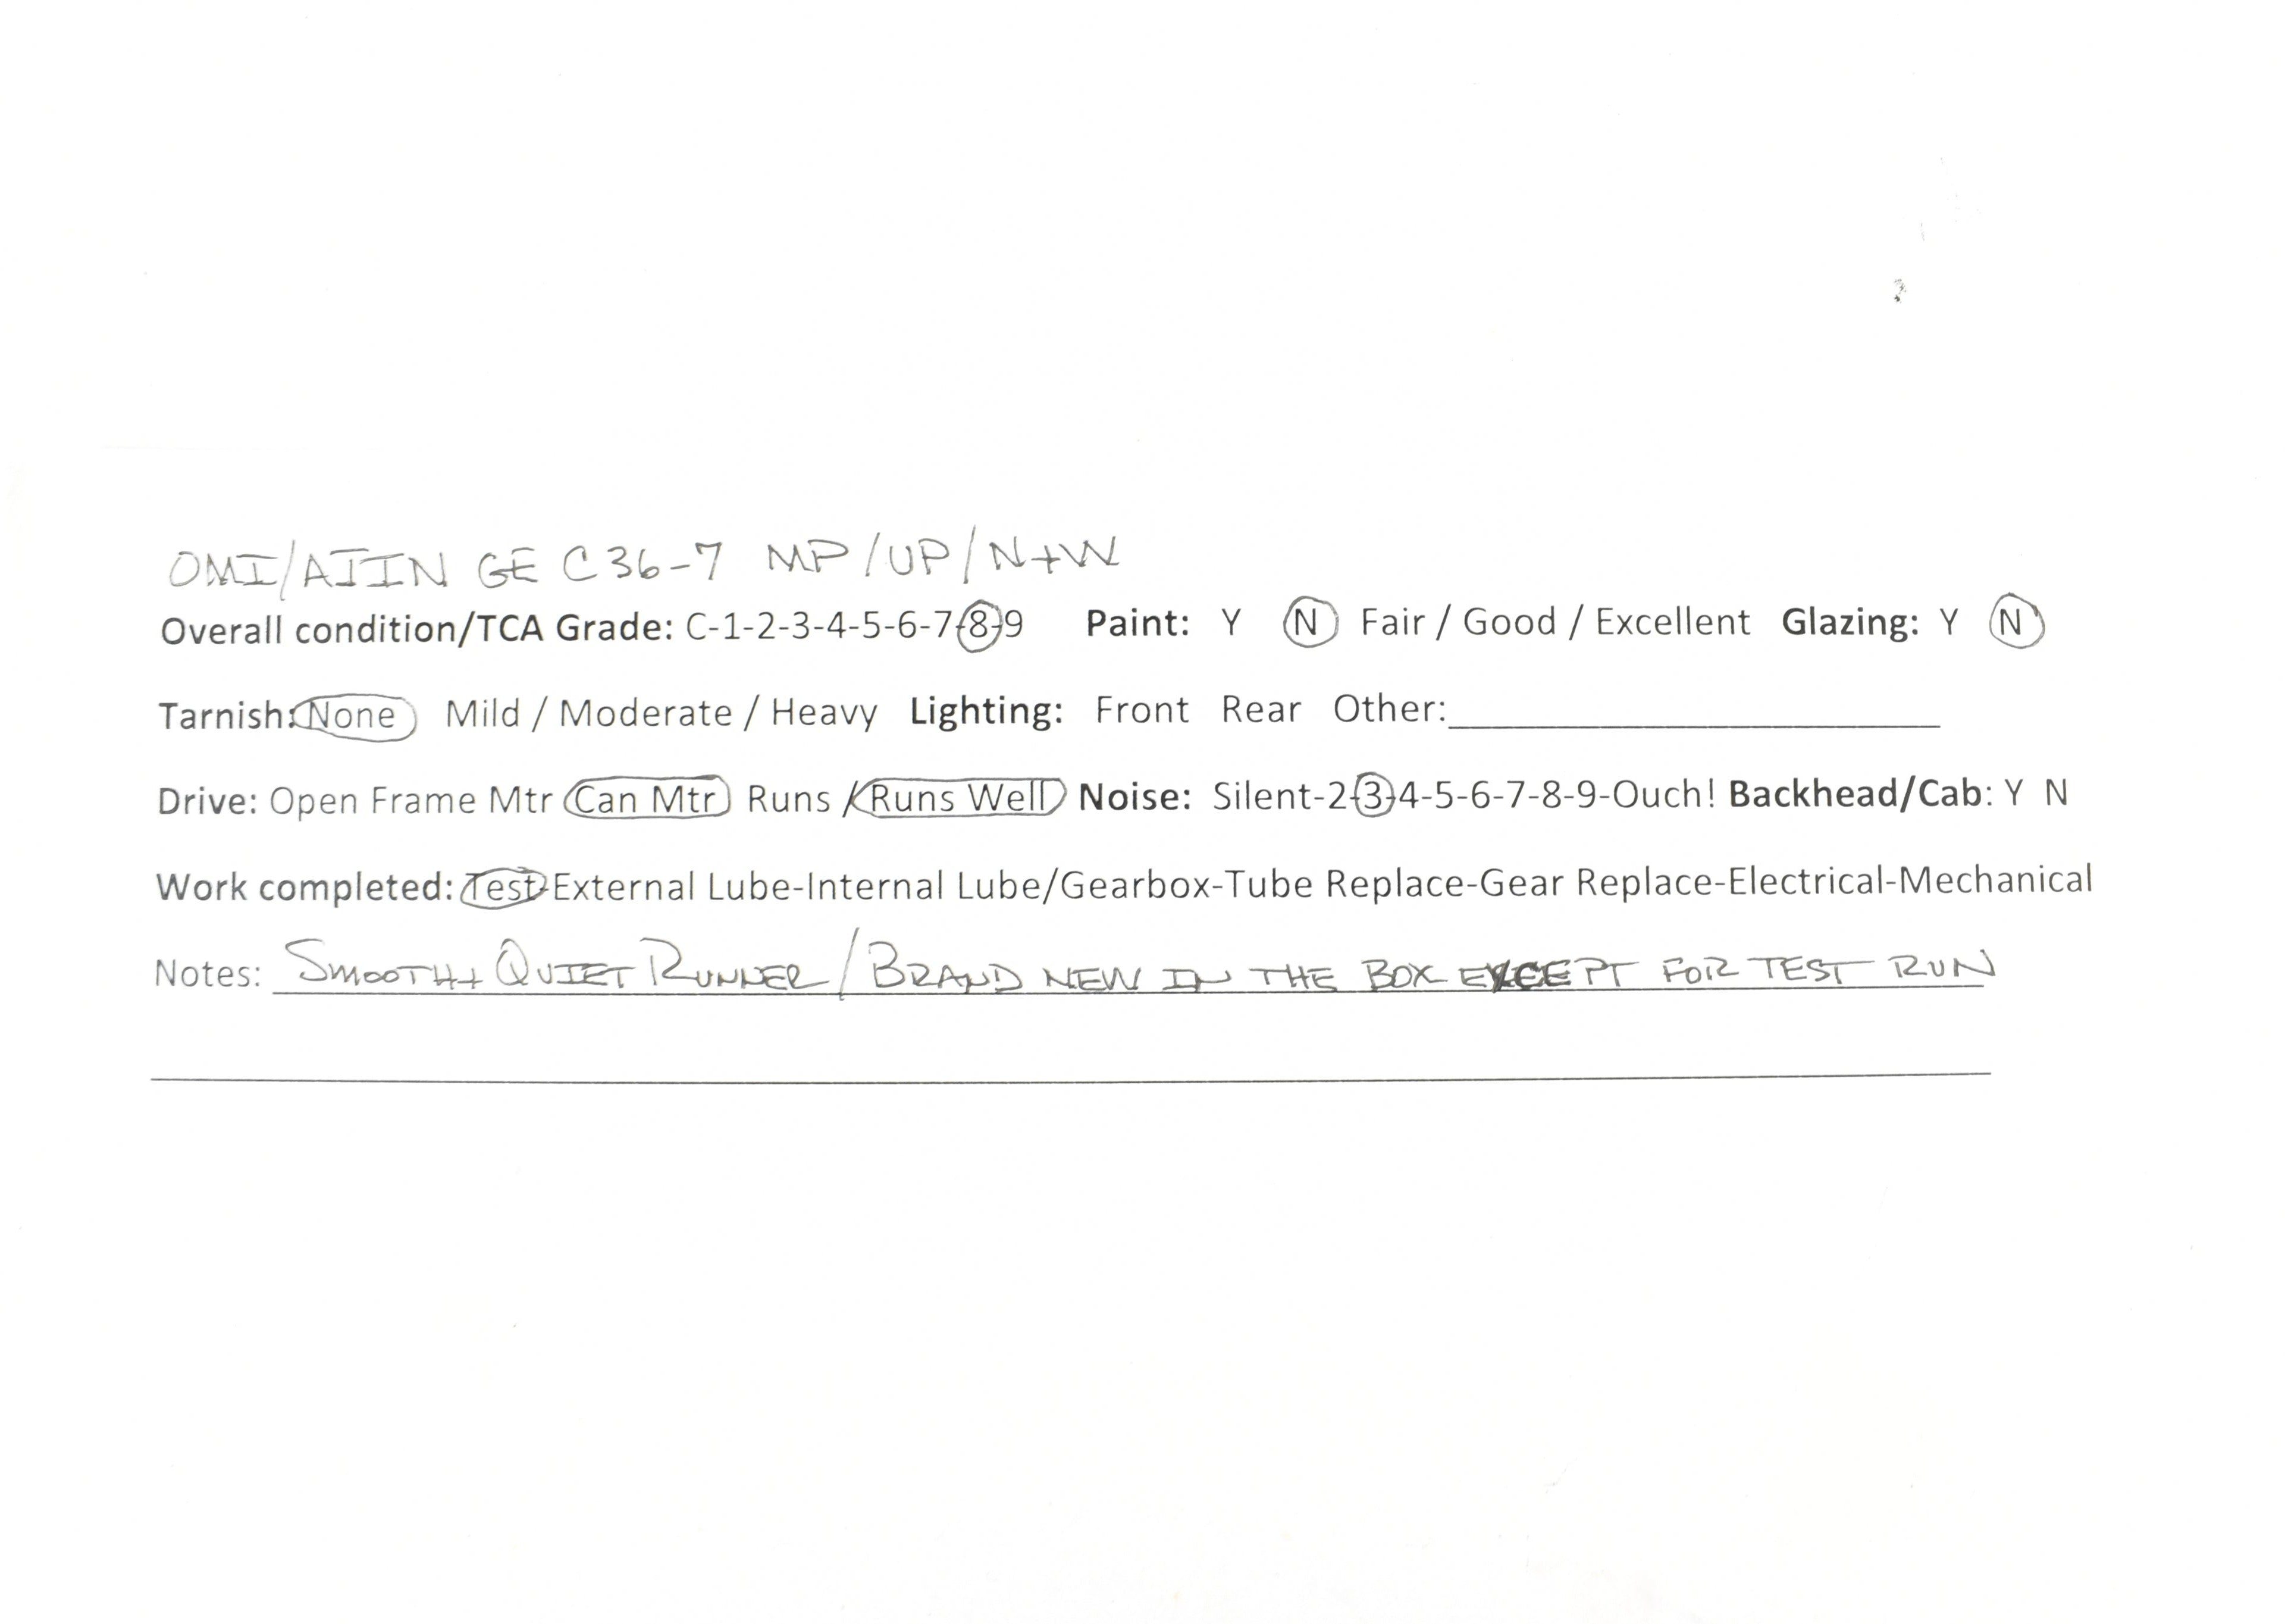 OMI/AJIN GE C36-7 MP/UP/N+W
Overall condition/TCA Grade: C-1-2-3-4-5-6-7-8-9 Paint: Y N Fair / Good / Excellent Glazing: Y N
Tarnish: None Mild / Moderate / Heavy Lighting: Front Rear Other:
Drive: Open Frame Mtr Can Mtr Runs / Runs Well Noise: Silent-2-3-4-5-6-7-8-9-Ouch! Backhead/Cab: Y N
Work completed: Test-External Lube-Internal Lube/Gearbox-Tube Replace-Gear Replace-Electrical-Mechanical
Notes: SMOOTH+ QUIET RUNNER/BRAND NEW IN THE BOX EXCEPT FOR TEST RUN